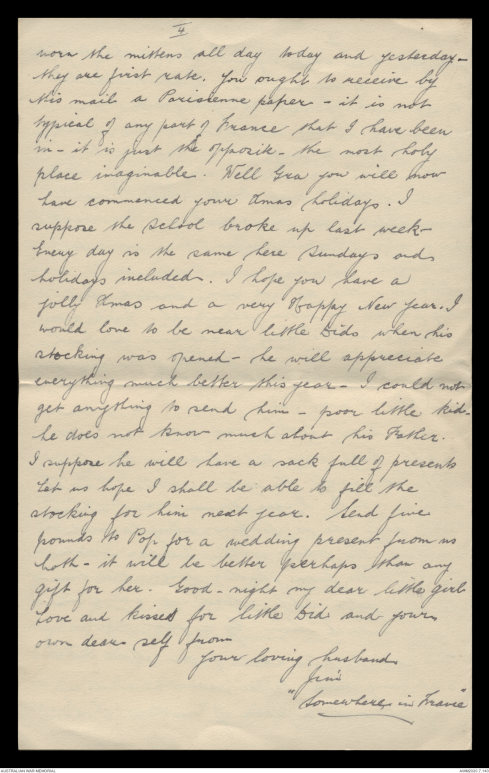 4
worn the mittens all day today and yesterday -
they are first rate. You ought to receive by
this mail a Parisienne paper - it is not
typical of any part of France that I have been
in - it is just the opposite - the most holy
place imaginable. Well Gra you will now
have commenced your Xmas holidays. I
suppose the School broke up last week -
Every day is the same here Sundays and
holidays included. I hope you have a
jolly Xmas and a very Happy New Year. I
would love to be near little Dids when his
stocking was opened - he will appreciate
everything much better this year - I could not
get anything to send him - poor little kid -
he does not know much about his Father.
I suppose he will have a sack full of presents
Let us hope I shall be able to fill the
stocking for him next year. Send five
pounds to Pop for a wedding present from us
both - it will be better perhaps than any
gift for her. Good-night my dear little girl
Love and kisses for little Did and your
own dear self from
Your loving husband
Jim
"Somewhere in France"
AUSTRALIAN WAR MEMORIAL